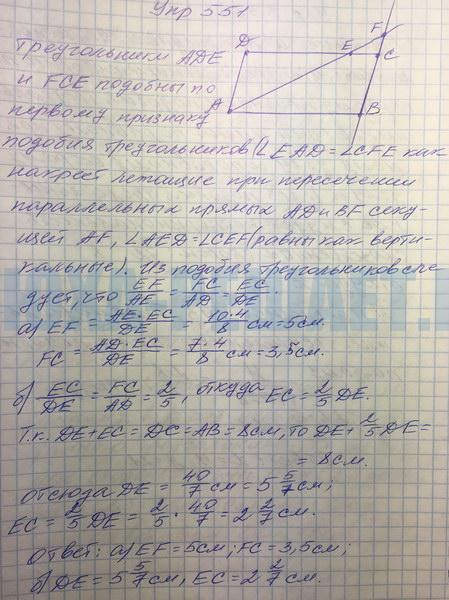 Упр 551
Треугольники ADE
и FCE подобны по
первому признаку
подобия треугольников (∠EAD = ∠CFE как
накрест лежащие при пересечении
параллельных прямых AD и BF секу-
щей AF, ∠AED = ∠CEF (равны как верти-
кальные). Из подобия треугольников сле-
дует, что EF/AE = FC/AD = EC/DE.
а) EF = AE·EC/DE = 10·4/8 см = 5 см.
FC = AD·EC/DE = 7·4/8 см = 3,5 см.
б) EC/DE = FC/AD = 2/5, откуда EC = 2/5 DE.
Т.к. DE + EC = DC = AB = 8 см, то DE + 2/5 DE =
= 8 см.
отсюда DE = 40/7 см = 5 5/7 см;
EC = 2/5 DE = 2/5 · 40/7 = 2 2/7 см.
Ответ: а) EF = 5 см; FC = 3,5 см;
б) DE = 5 5/7 см, EC = 2 2/7 см.
D
E
F
C
A
B